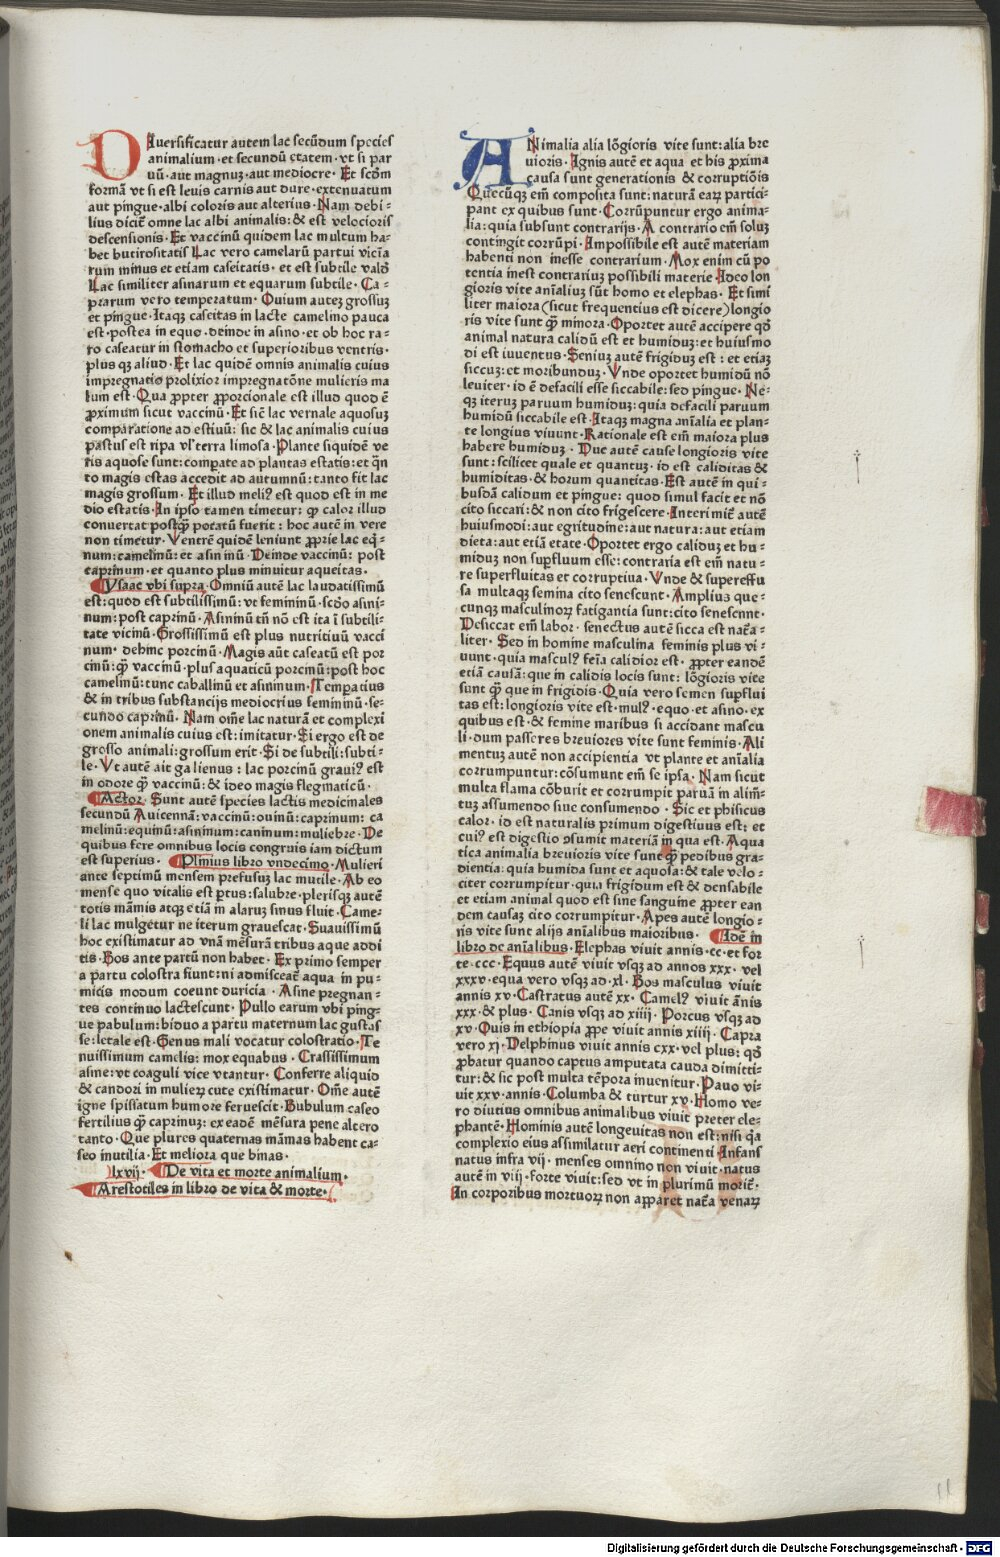 DIuersificatur autem lac secūdum species
animalium·et secundū etatem·vt si par
uū·aut magnuz·aut mediocre· Et scōm
formā vt si est leuis carnis aut dure·extenuatum
aut pingue·albi coloris aut alterius· Nam debi⸗
lius dicit̄ omne lac albi animalis:& est velocioris
descensionis· Et vaccinū quidem lac multum ha⸗
bet butirositatis Lac vero camelarū partui vicīa
rum minus et etiam caseitatis· et est subtile valđ
Lac similiter asinarum et equarum subtile· Ca⸗
prarum vero temperatum· Ouium autez grossuz
et pingue· Itaqz caseitas in lacte camelino pauca
est·postea in equo·deinde in asino·et ob hoc ra⸗
ro caseatur in stomacho et superioribus ventris·
plus qz aliud· Et lac quidē omnis animalis cuius
impregnatio prolixior impregnatōne mulieris ma
lum est· Qua ꝓpter ꝓporcionale est illud quod ē
ꝓximum sicut vaccinū· Et sic̄ lac vernale aquosuz
comparatione ad estiuū: sic & lac animalis cuius
pastus est ripa vl' terra limosa· Plante siquidē ve
ris aquose sunt: compate ad plantas estatis: et q̄n
to magis estas accedit ad autumnū: tanto fit lac
magis grossum· Et illud meliꝰ est quod est in me
dio estatis· In ipso tamen timetur: qꝫ calor illud
conuertat postqꝫ potatū fuerit: hoc autē in vere
non timetur· Ventrē quidē leniunt ꝓprie lac eq̄⸗
num: camelinū: et asininū· Deinde vaccinū: post
caprinum·et quanto plus minuitur aqueitas·
Ysaac vbi supra· Omniū autē lac laudatissimū
est: quod est subtilissimū: vt femininū·scđo asini⸗
num: post caprinū· Asininū tn̄ nō est ita ī subtili⸗
tate vicinū· Grossissimū est plus nutritiuū vacci
num· dehinc porcinū· Magis aūt caseatū est por
cinū: qꝫ vaccinū·plus aquaticū porcinū: post hoc
camelinū: tunc caballinū et asininum· Temperatius
& in tribus substancijs mediocrius femininū·se⸗
cundo caprinū· Nam om̄e lac naturā et complexi
onem animalis cuius est: imitatur· Si ergo est de
grosso animali: grossum erit· Si de subtili: subti⸗
le· Vt autē ait galienus: lac porcinū grauiꝰ est
in odore qꝫ vaccinū: & ideo magis flegmaticū·
Actor· Sunt autē species lactis medicinales
secundū Auicennā: vaccinū: ouinū: caprinum: ca
melinū: equinū: asininum: caninum: muliebre· De
quibus fere omnibus locis congruis iam dictum
est superius· Plinius libro vndecimo· Mulieri
ante septimū mensem prefusuz lac inutile· Ab eo
mense quo vitalis est ptus: salubre·plerisqz autē
totis māmis atqz etiā in alaruz sinus fluit· Came⸗
li lac mulgetur ne iterum grauescat· Suauissimū
hoc existimatur ad vnā mēsurā tribus aque addi
tis· Bos ante partū non habet· Ex primo semper
a partu colostra fiunt: ni admisceat̄ aqua in pu⸗
micis modum coeunt duricia· Asine pregnan⸗
tes continuo lactescunt· Pullo earum vbi ping⸗
ue pabulum: biduo a partu maternum lac gustas
se: letale est· Genus mali vocatur colostratio· Te
nuissimum camelis: mox equabus· Crassissimum
asine: vt coaguli vice vtantur· Conferre aliquid
& candori in mulieꝝ cute existimatur· Om̄e autē
igne spissatum humore feruescit· Bubulum caseo
fertilius qꝫ caprinuz: ex eadē mēsura pene altero
tanto· Que plures quaternas māmas habent ca⸗
seo inutilia· Et meliora que binas·
lxvij· De vita et morte animalium·
Arestotiles in libro de vita & morte·
ANimalia alia lōgioris vite sunt: alia bre
uioris· Ignis autē et aqua et his ꝓxima
causa sunt generationis & corruptiōis
Quecūqz em̄ composita sunt: naturā eaꝝ partici⸗
pant ex quibus sunt· Corrūpuntur ergo anima⸗
lia: quia subsunt contrarijs· A contrario em̄ soluz
contingit corrūpi· Impossibile est autē materiam
habenti non inesse contrarium· Mox enim cū po
tentia inest contrariuz possibili materie· Ideo lon
gioris vite aīaliuz sūt homo et elephas· Et simi
liter maiora (sicut frequentius est dicere) longio
ris vite sunt qꝫ minora· Oportet autē accipere qđ
animal natura calidū est et humiduz: et huiusmo
di est iuuentus· Seniuz autē frigiduz est: et etiaz
siccuz: et moribunduz· Vnde oportet humidū nō
leuiter· id ē defacili esse siccabile: sed pingue· Ne⸗
qz iteruz paruum humiduz: quia defacili paruum
humidū siccabile est· Itaqz magna aīalia et plan⸗
te longius viuunt· Rationale est em̄ maiora plus
habere humiduz· Due autē cause longioris vite
sunt: scilicet quale et quantuz· id est caliditas &
humiditas· & horum quantitas· Est autē in qui⸗
busdā calidum et pingue: quod simul facit et nō
cito siccari: & non cito frigescere· Interimit̄ autē
huiusmodi: aut egritudine: aut natura: aut etiam
dieta: aut etiā etate· Oportet ergo caliduz et hu⸗
miduz non supfluum esse: contraria est em̄ natu⸗
re superfluitas et corruptiua· Vnde & supereffu
sa multaqz semina cito senescunt· Amplius que⸗
cunqz masculinoꝝ fatigantia sunt: cito senescunt·
Desiccat em̄ labor· senectus autē sicca est nat̄a⸗
liter· Sed in homine masculina feminis plus vi⸗
uunt·quia masculꝰ fēia calidior est· ꝓpter eandē
etiā causā: que in calidis locis sunt: lōgioris vite
sunt qꝫ que in frigidis· Quia vero semen supflui
tas est: longioris vite est·mulꝰ·equo·et asino·ex
quibus est·& femine maribus si accidant mascu
li·dum passeres breuiores vite sunt feminis· Ali
mentuz autē non accipientia vt plante et aīalia
corrumpuntur: cōsumunt em̄ se ipsa· Nam sicut
multa flama cōburit et corrumpit paruā in alim̄⸗
tuz assumendo siue consumendo· Sic et phisicus
calor·id est naturalis primum digestiuus est: et
cuiꝰ est digestio ɔsumit materiā in qua est· Aqua
tica animalia breuioris vite sunt qꝫ pedibus gra⸗
dientia: quia humida sunt et aquosa: & tale velo⸗
citer corrumpitur·quia frigidum est & densabile
et etiam animal quod est sine sanguine ꝓpter ean
dem causaz cito corrumpitur· Apes autē longio⸗
ris vite sunt alijs aīalibus maioribus· Idē in
libro de aīalibus· Elephas viuit annis·cc·et for
te·ccc· Equus autē viuit vsqz ad annos xxx· vel
xxxv·equa vero vsqz ad·xl· Bos masculus viuit
annis xv· Castratus autē xx· Camelꝰ viuit ānis
xxx·& plus· Canis vsqz ad xiiij· Porcus vsqz ad
xv· Ouis in ethiopia ꝓpe viuit annis xiiij· Capra
vero xj· Delphinus viuit annis cxx·vel plus: qđ
ꝓbatur quando captus amputata cauda dimitti⸗
tur: & sic post multa tēpora inuenitur· Pauo vi⸗
uit xxv·annis· Columba & turtur xv· Homo ve⸗
ro diutius omnibus animalibus viuit preter ele⸗
phantē· Hominis autē longeuitas non est: nisi q̄a
complexio eius assimilatur aeri continenti· Infans
natus infra vij· menses omnino non viuit·natus
autē in viij·forte viuit: sed vt in plurimū morit̄·
In corporibus mortuoꝝ non apparet nat̄a venaꝝ
Digitalisierung gefördert durch die Deutsche Forschungsgemeinschaft - DFG